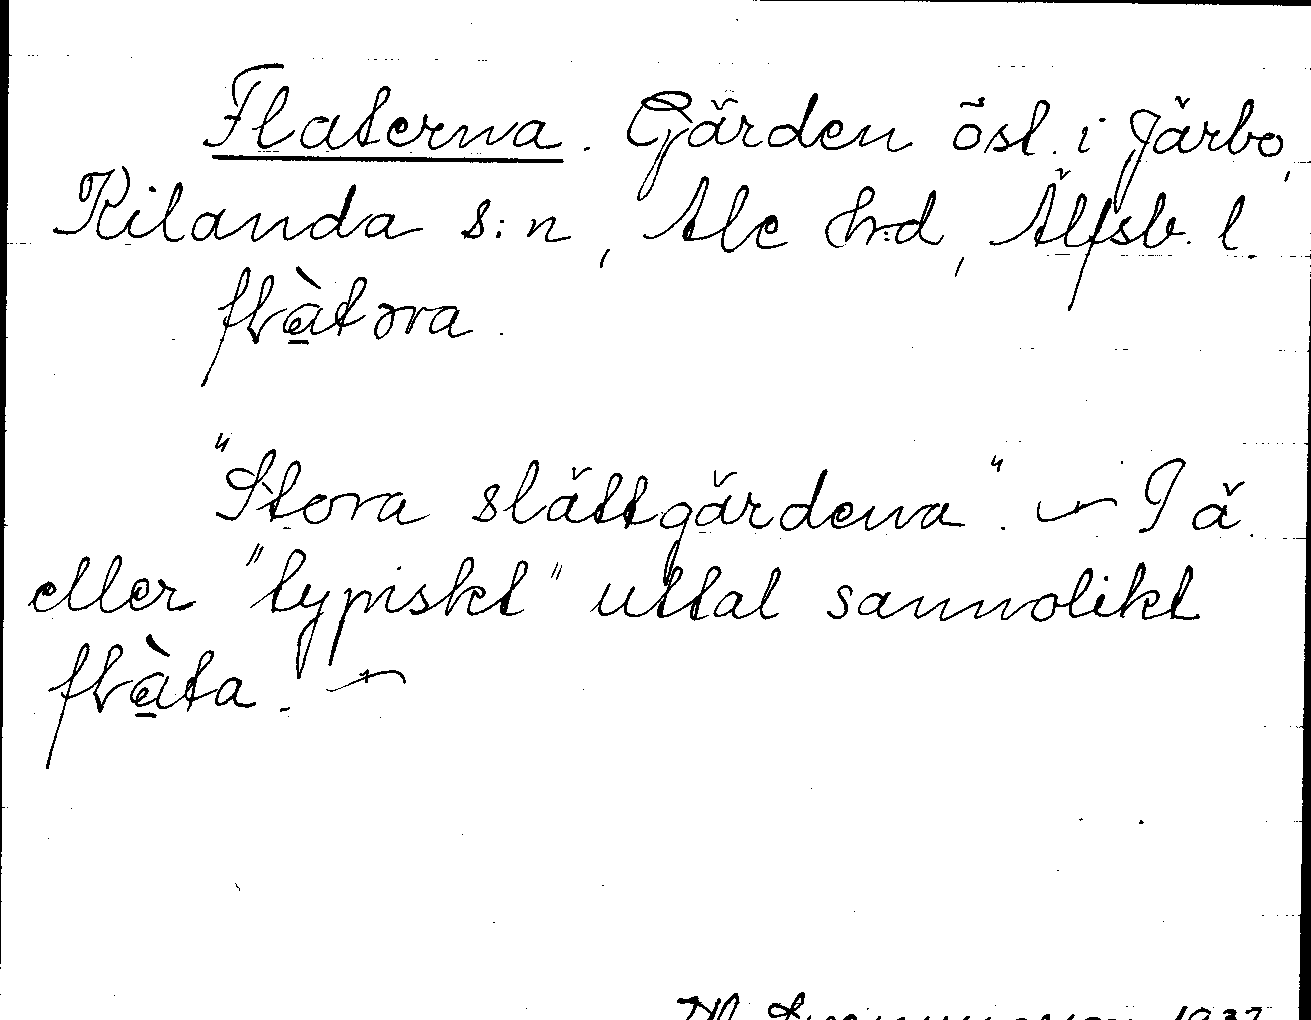 Flaterna. Gärden östl. i Järbo,
Kilanda s:n, Ale h:d, Älfsb. l.
flàtəra.
"Stora slättgärdena". — I ä.
eller "typiskt" uttal sannolikt
flàta. —
1937